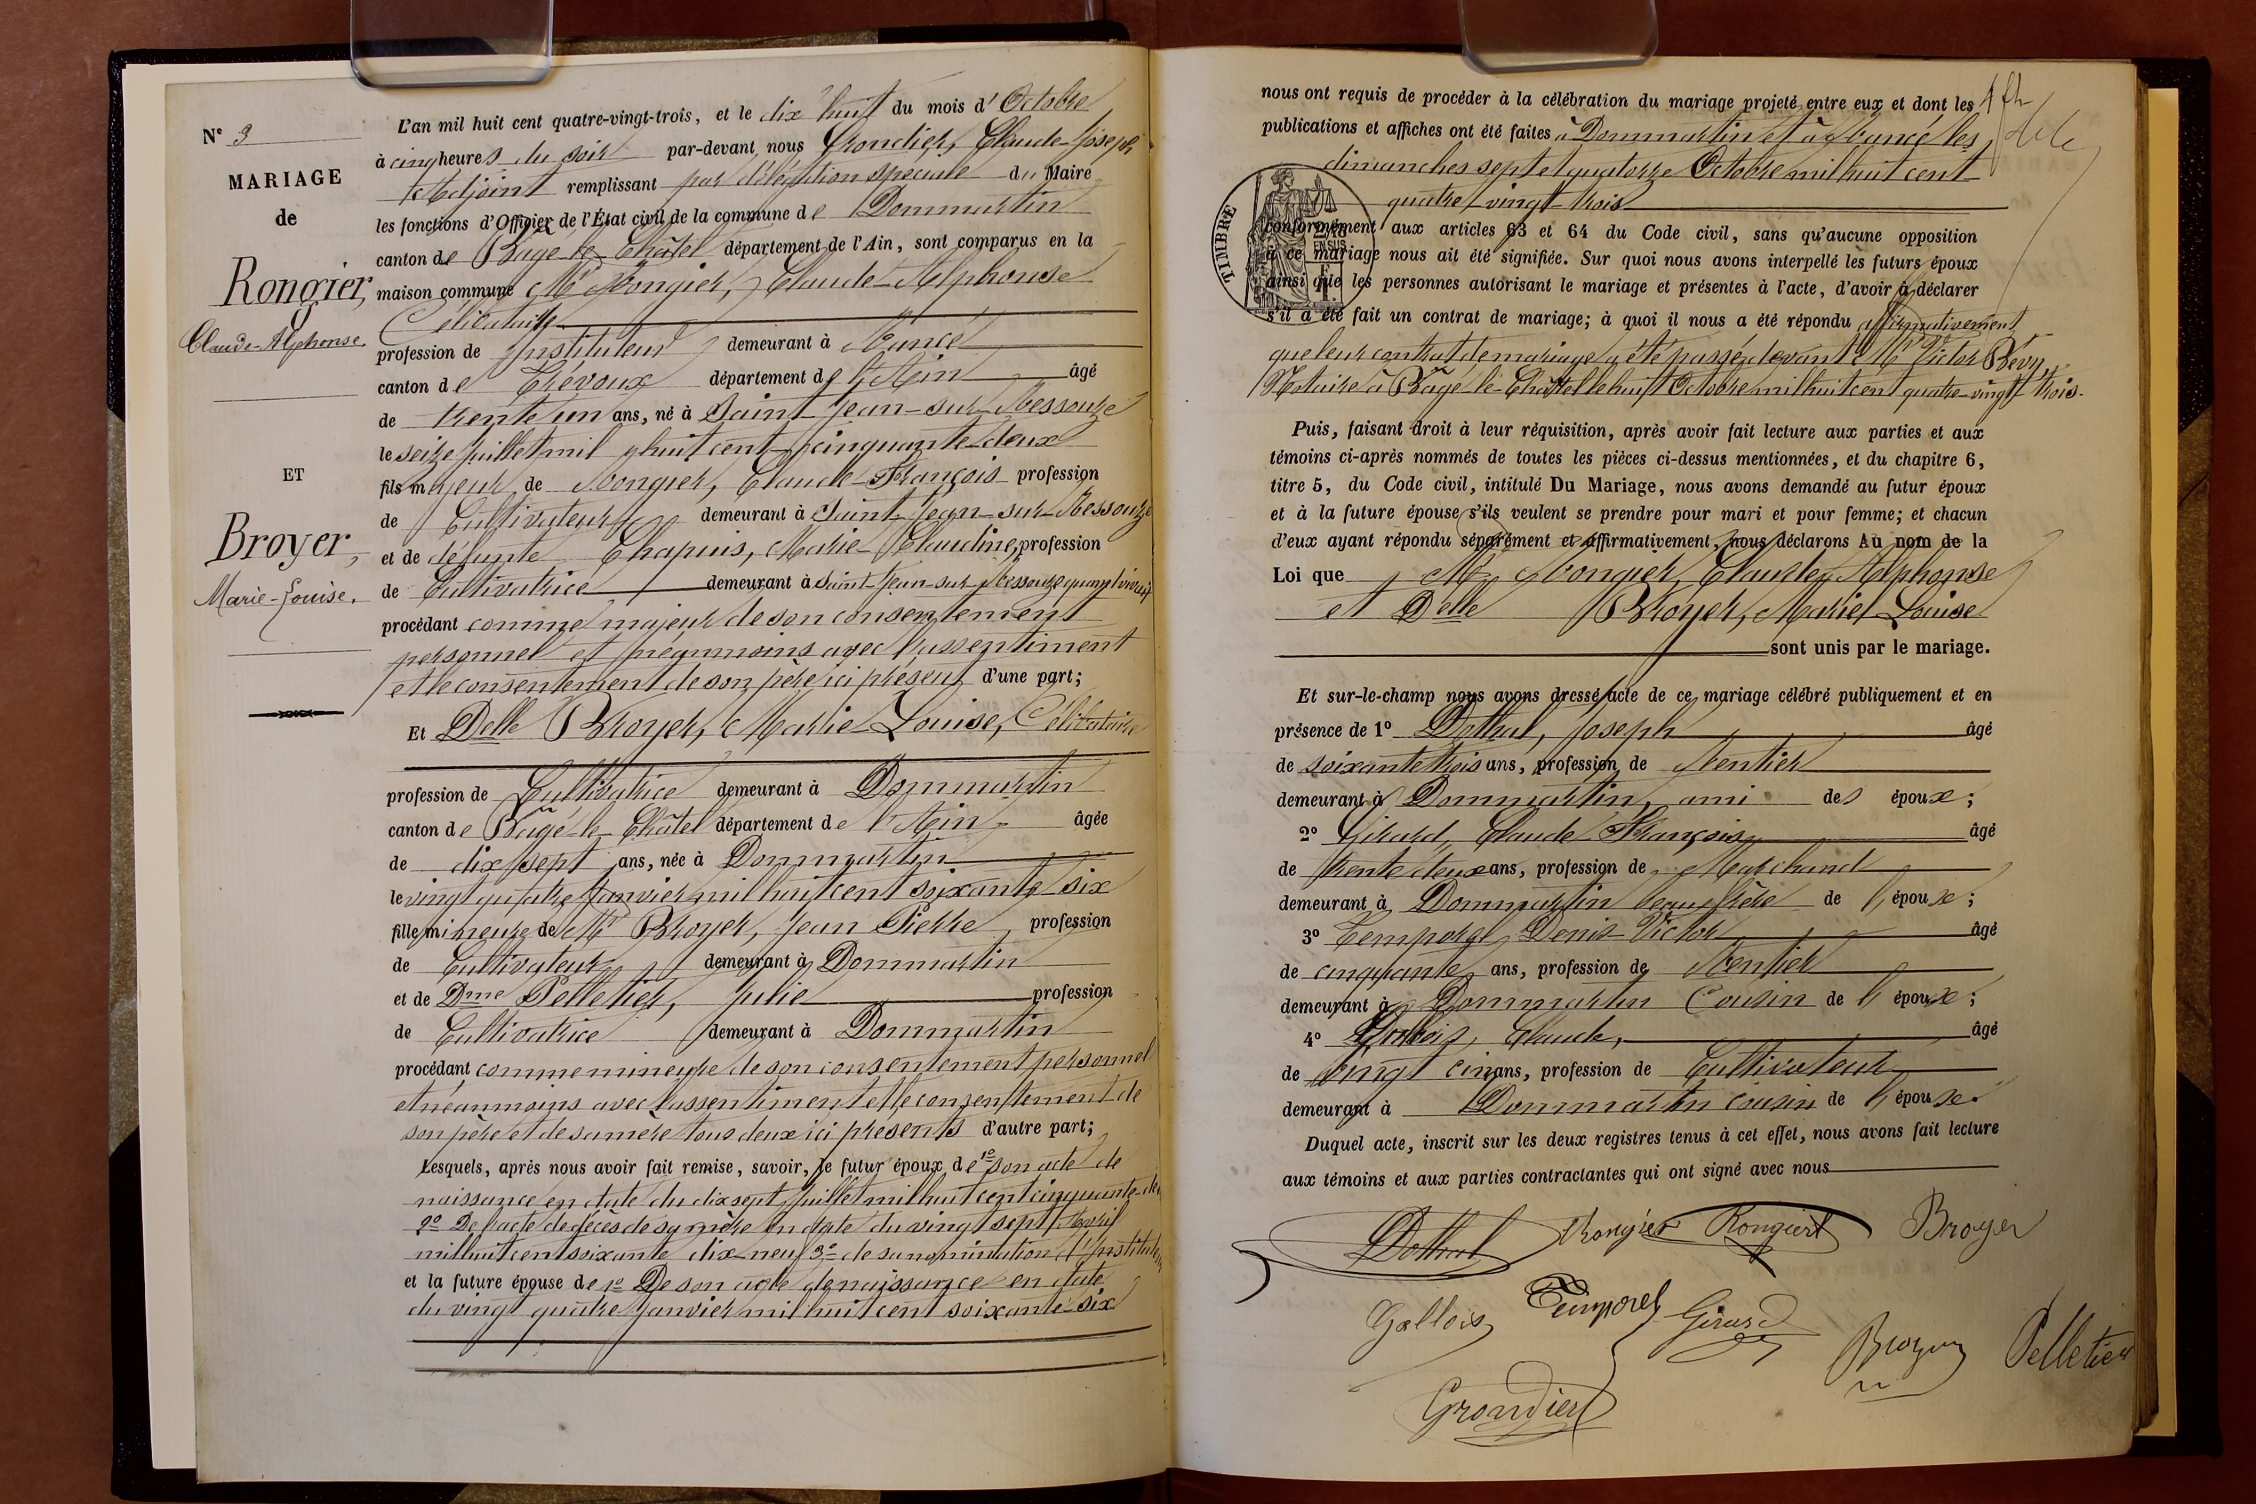 N° 9
MARIAGE
de
Rongier,
Claude-Alphonse.
ET
Broyer,
Marie-Louise.
L'an mil huit cent quatre-vingt-trois, et le dix huit du mois d'Octobre
à cinq heures du soir par-devant nous Grondier, Claude-Joseph
Adjoint remplissant par délégation spéciale du Maire
les fonctions d'Officier de l'État civil de la commune de Dommartin
canton de Bâgé-le-Châtel département de l'Ain, sont comparus en la
maison commune Mr Rongier, Claude-Alphonse
Célibataire
profession de Instituteur demeurant à Rancé
canton de Trévoux département de l'Ain âgé
de trente un ans, né à Saint-Jean-sur-Ressouze
le seize juillet mil huit cent cinquante-deux
fils majeur de Rongier, Claude-François profession
de Cultivateur demeurant à Saint-Jean-sur-Ressouze
et de défunte Chapuis, Marie-Claudine, profession
de Cultivatrice demeurant à Saint-Jean-sur-Ressouze quand vivait
procédant comme majeur de son consentement
personnel et néanmoins avec l'assentiment
et le consentement de son père ici présent d'une part;
Et Delle Broyer, Marie Louise, Célibataire
profession de Cultivatrice demeurant à Dommartin
canton de Bâgé-le-Châtel département de l'Ain âgée
de dix sept ans, née à Dommartin
le vingt quatre Janvier mil huit cent soixante six
fille mineure de Mr Broyer, Jean Pierre, profession
de Cultivateur demeurant à Dommartin
et de Dme Pelletier, Julie profession
de Cultivatrice demeurant à Dommartin
procédant comme mineure de son consentement personnel
et néanmoins avec l'assentiment et le consentement de
son père et de sa mère tous deux ici présents d'autre part;
Lesquels, après nous avoir fait remise, savoir, le futur époux de 1° son acte de
naissance en date du dix sept Juillet mil huit cent cinquante-deux
2° De l'acte de décès de sa mère en date du vingt sept Avril
mil huit cent soixante dix neuf 3° de sa nomination d'Instituteur
et la future épouse de 1° De son acte de naissance en date
du vingt quatre Janvier mil huit cent soixante-six
nous ont requis de procéder à la célébration du mariage projeté entre eux et dont les
publications et affiches ont été faites à Dommartin et à Rancé les
dimanches sept et quatorze Octobre mil huit cent
quatre-vingt trois
TIMBRE
conformément aux articles 63 et 64 du Code civil, sans qu'aucune opposition
à ce mariage nous ait été signifiée. Sur quoi nous avons interpellé les futurs époux
ainsi que les personnes autorisant le mariage et présentes à l'acte, d'avoir à déclarer
s'il a été fait un contrat de mariage; à quoi il nous a été répondu affirmativement
que leur contrat de mariage a été passé devant Me Victor Révy
Notaire à Bâgé-le-Châtel le huit Octobre mil huit cent quatre-vingt trois.
Puis, faisant droit à leur réquisition, après avoir fait lecture aux parties et aux
témoins ci-après nommés de toutes les pièces ci-dessus mentionnées, et du chapitre 6,
titre 5, du Code civil, intitulé Du Mariage, nous avons demandé au futur époux
et à la future épouse s'ils veulent se prendre pour mari et pour femme; et chacun
d'eux ayant répondu séparément et affirmativement, nous déclarons Au nom de la
Loi que Mr Rongier, Claude, Alphonse
et Delle Broyer, Marie Louise
sont unis par le mariage.
Et sur-le-champ nous avons dressé acte de ce mariage célébré publiquement et en
présence de 1° Dothal, Joseph âgé
de soixante trois ans, profession de Rentier
demeurant à Dommartin, ami des époux;
2° Girard, Claude François âgé
de trente deux ans, profession de Marchand
demeurant à Dommartin beau frère de l'épouse;
3° Temporel Denis Victor âgé
de cinquante ans, profession de Rentier
demeurant à Dommartin Cousin de l'épouse;
4° Gallois, Claude, âgé
de vingt cinq ans, profession de Cultivateur
demeurant à Dommartin cousin de l'épouse.
Duquel acte, inscrit sur les deux registres tenus à cet effet, nous avons fait lecture
aux témoins et aux parties contractantes qui ont signé avec nous
Dothal Rongier Rongier Broyer
Gallois Temporel Girard Broyer Pelletier
Grondier